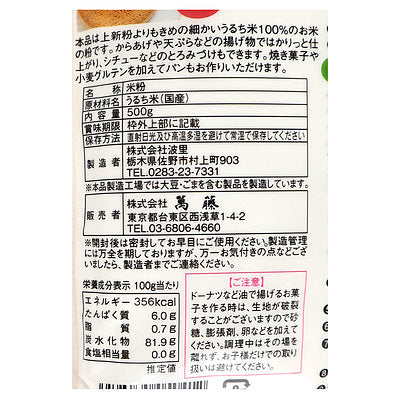 本品は上新粉よりもきめの細かいうるち米100%のお米
の粉です。からあげや天ぷらなどの揚げ物ではかりっと仕
上がり、シチューなどのとろみづけもできます。焼き菓子や
小麦グルテンを加えてパンもお作りいただけます。
名 称 米粉
原材料名 うるち米(国産)
内 容 量 500g
賞味期限 枠外上部に記載
保存方法 直射日光及び高温多湿を避けて常温で保存してください
製 造 者 株式会社波里
栃木県佐野市村上町903
TEL.0283-23-7331
※本品製造工場では大豆・ごまを含む製品を製造しています。
販 売 者 株式会社 萬 藤
東京都台東区西浅草1-4-2
TEL.03-6806-4660
※開封後は密封してお早目にご使用ください。製造管理
には万全を期しておりますが、万一お気付きの点などござ
いましたら、製造者までご連絡ください。
栄養成分表示 100g当たり
エネルギー 356kcal
たんぱく質 6.0g
脂 質 0.7g
炭 水 化 物 81.9g
食塩相当量 0.0g
推定値
【ご注意】
ドーナツなど油で揚げるお菓
子を作る時は、生地が破裂
することがございますので砂
糖、膨張剤、卵などを加えて
ください。調理中はその場を
離れず、お子様だけでの取り
扱いは避けてください。